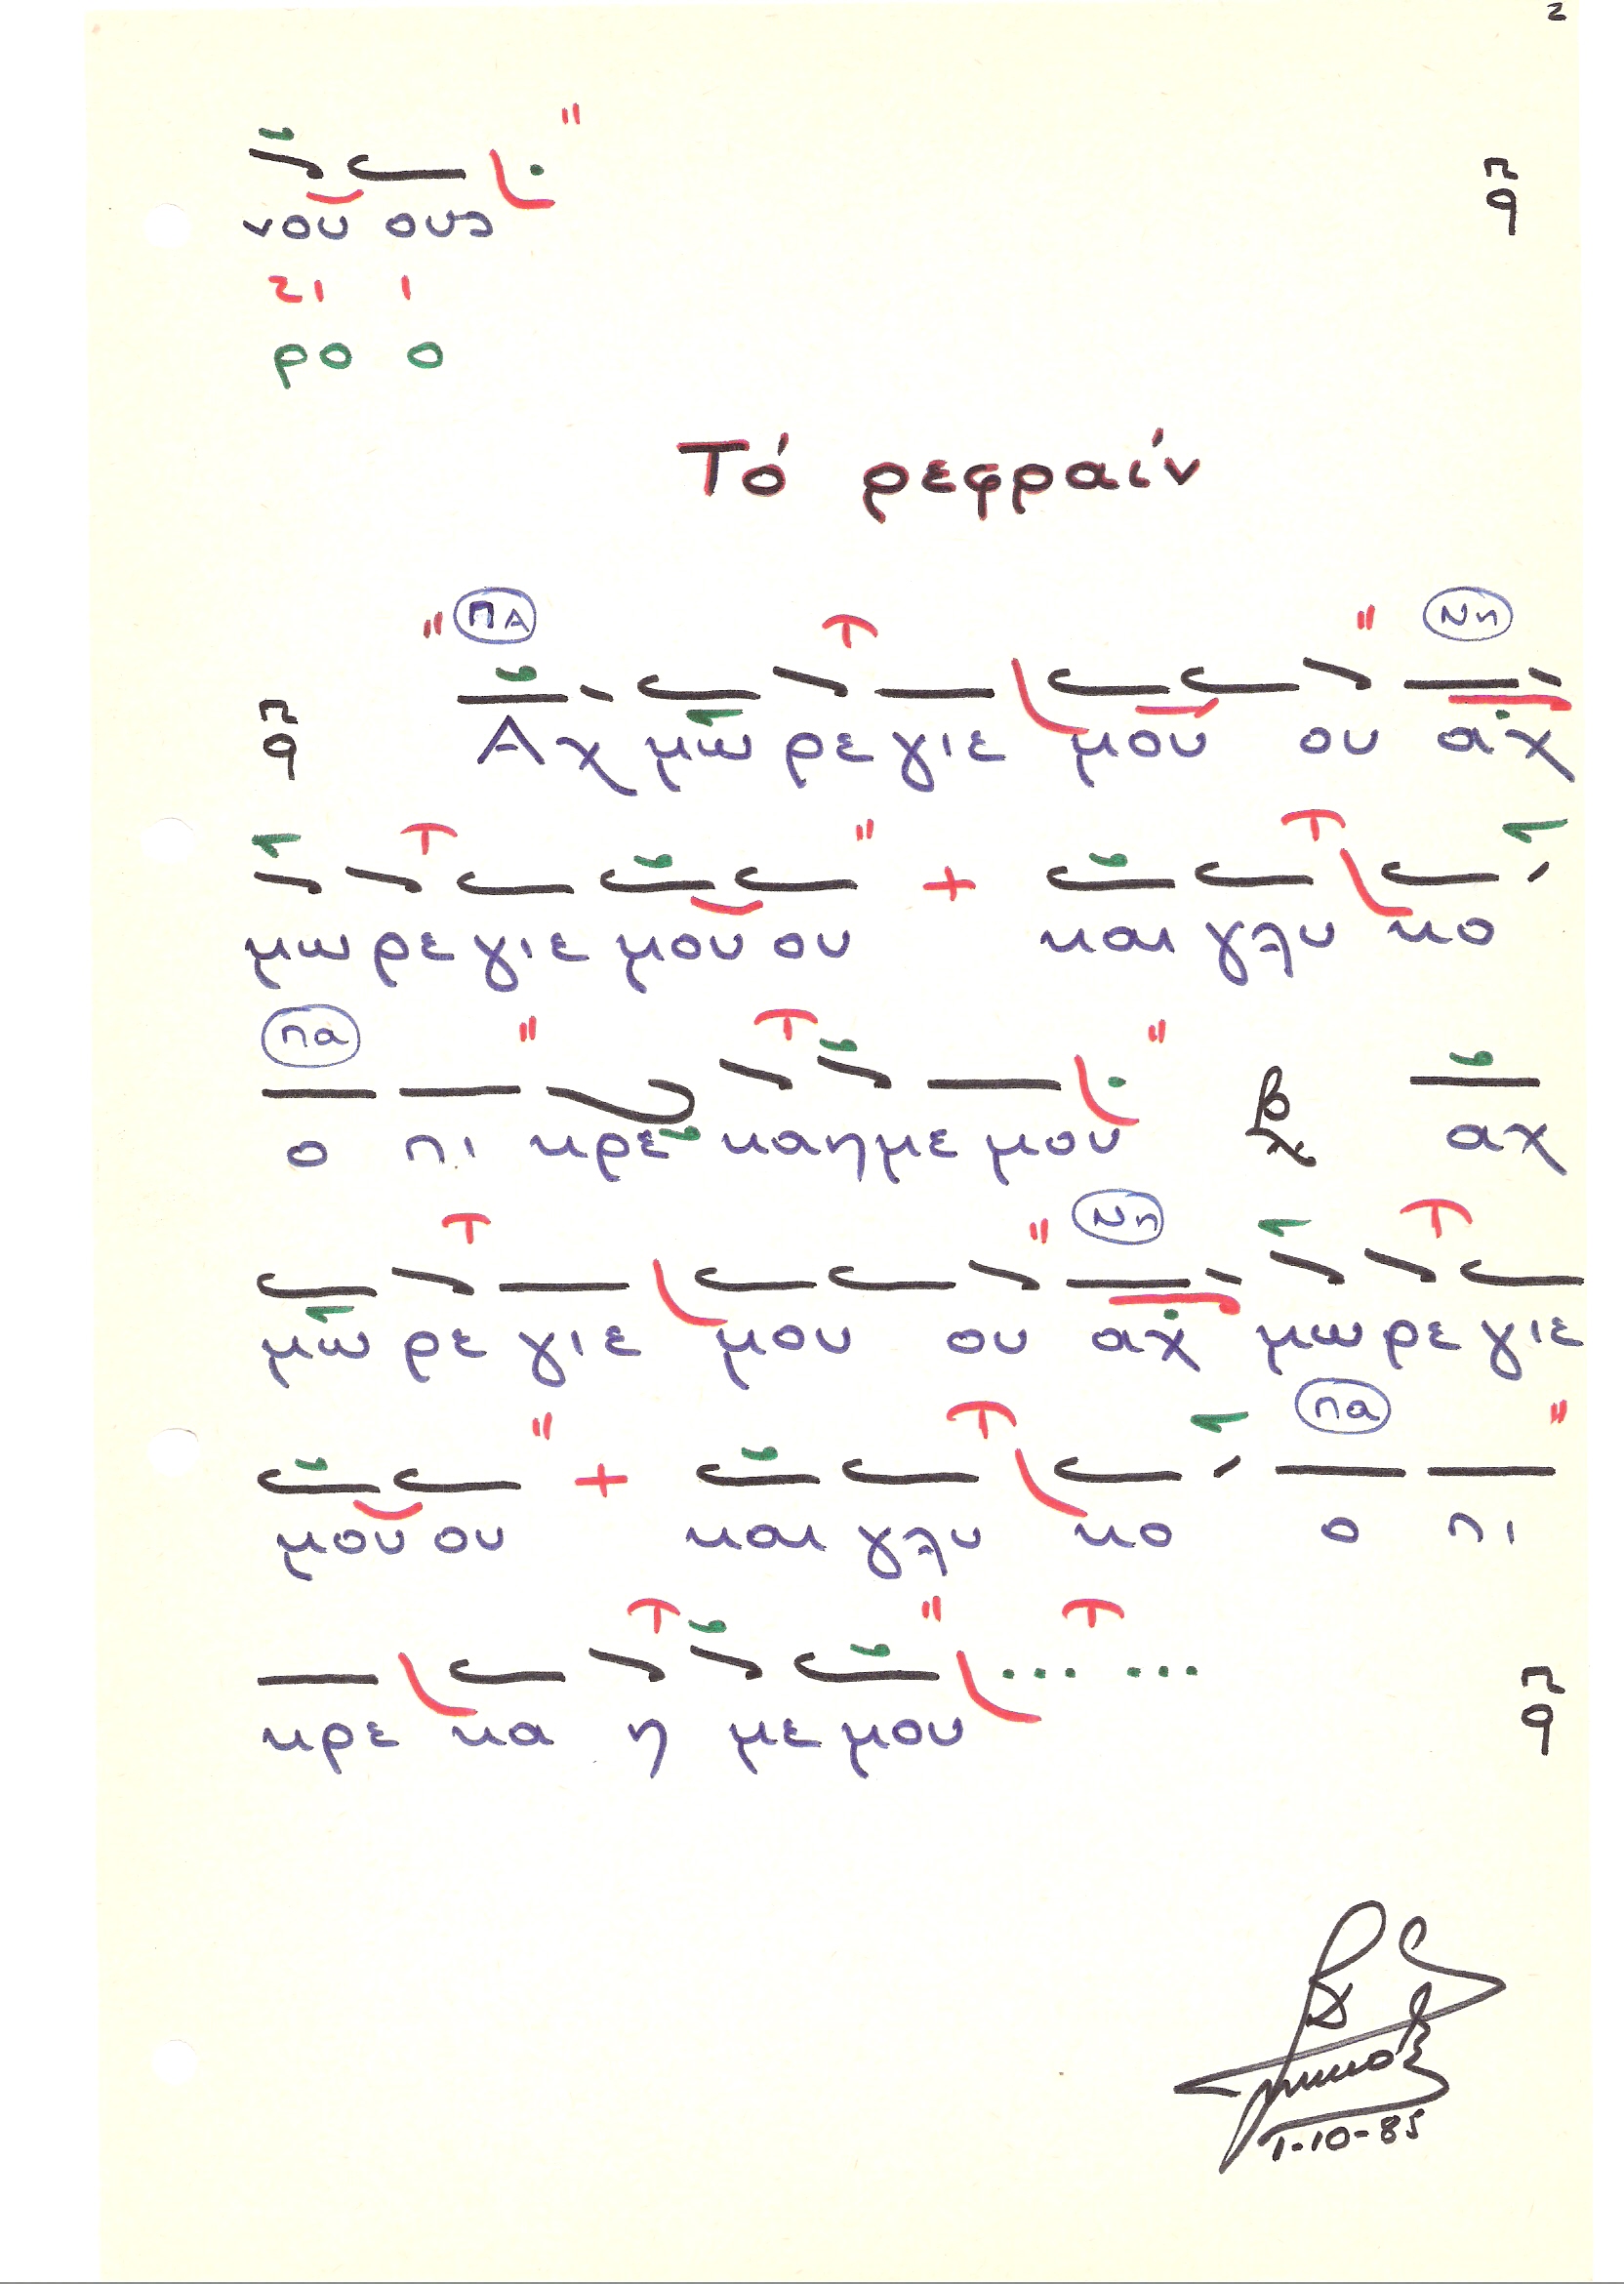 2
νου ους
21 1
ρο ο
Τό ρεφραίν
ΠΑ Νη
Αχ μω ρε γιε μου ου αχ
μω ρε γιε μου ου και γλυ κο
πα
ο πι κρε καημε μου αχ
Νη
μω ρε γιε μου ου αχ μω ρε γιε
πα
μου ου και γλυ κο ο πι
κρε κα η με μου
1-10-85